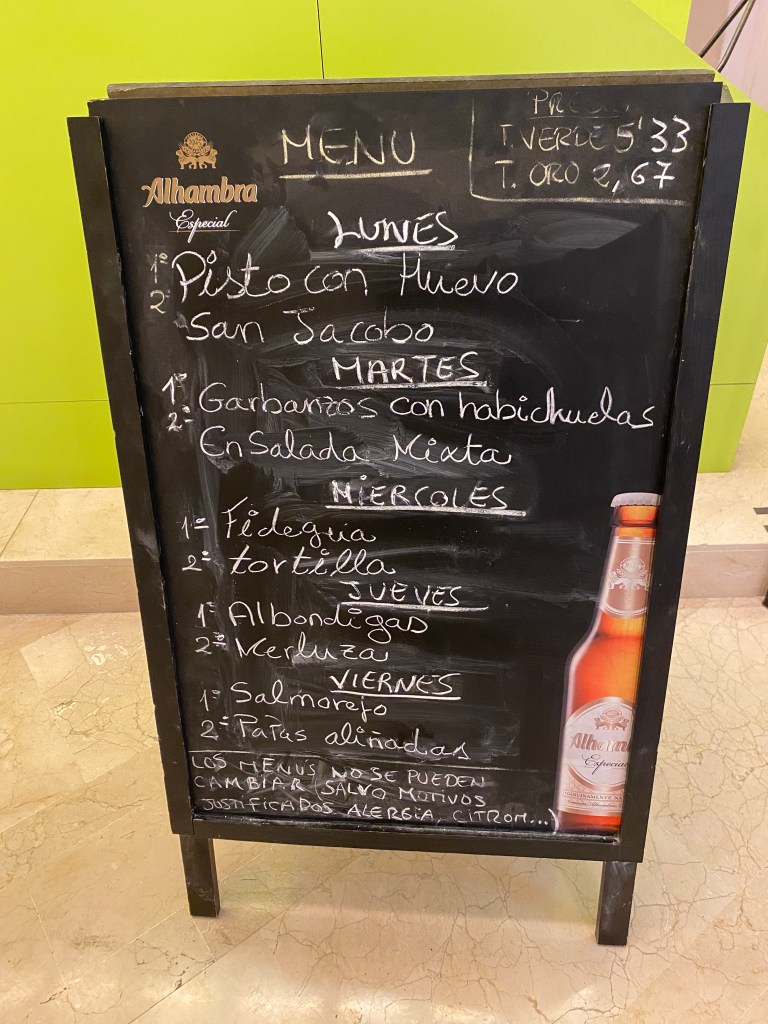 MENU
T. VERDE 5'33
T. ORO 2,67
Alhambra
Especial
LUNES
1º Pisto con Huevo
2º San Jacobo
MARTES
1º Garbanzos con habichuelas
2º Ensalada Mixta
MIERCOLES
1º Fidegua
2º tortilla
JUEVES
1º Albondigas
2º Merluza
VIERNES
1º Salmorejo
2º Papas aliñadas
LOS MENÚS NO SE PUEDEN
CAMBIAR (SALVO MOTIVOS
JUSTIFICADOS ALERGIA, CITROM...)
Alham
Especial